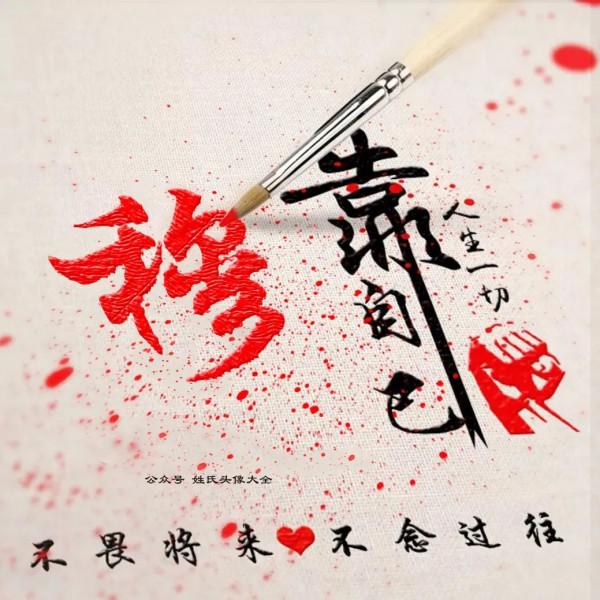 穆
靠自己
人生一切
公众号 姓氏头像大全
不畏将来❤不念过往